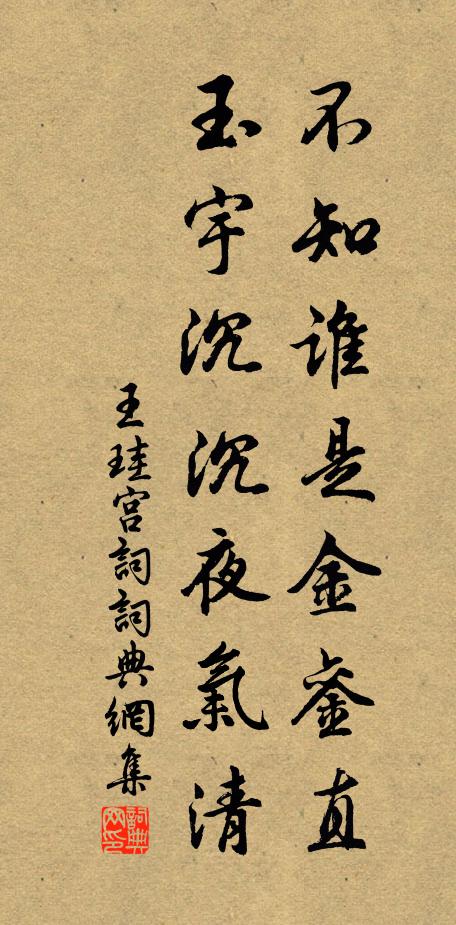 不知誰是金銮直
玉宇沉沉夜氣清
王珪宮詞詞典網集
詞典
网印